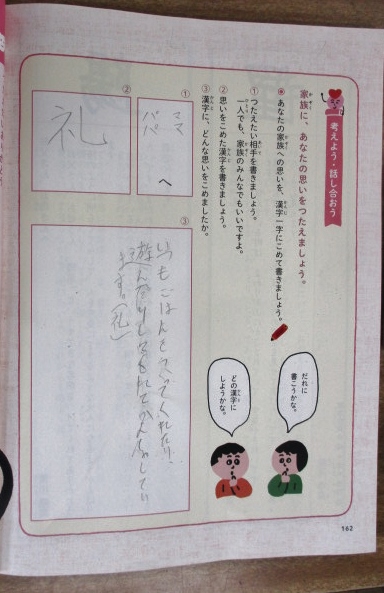 考えよう・話し合おう
家族に、あなたの思いをつたえましょう。
あなたの家族への思いを、漢字一字にこめて書きましょう。
①つたえたい相手を書きましょう。
一人でも、家族のみんなでもいいですよ。
②思いをこめた漢字を書きましょう。
③漢字に、どんな思いをこめましたか。
だれに
書こうかな。
どの漢字に
しようかな。
①
ママ
パパ
へ
②
礼
③
いつもごはんをつくってくれたり、
遊んだりしてくれてかんしゃしてい
ます。(礼)
162